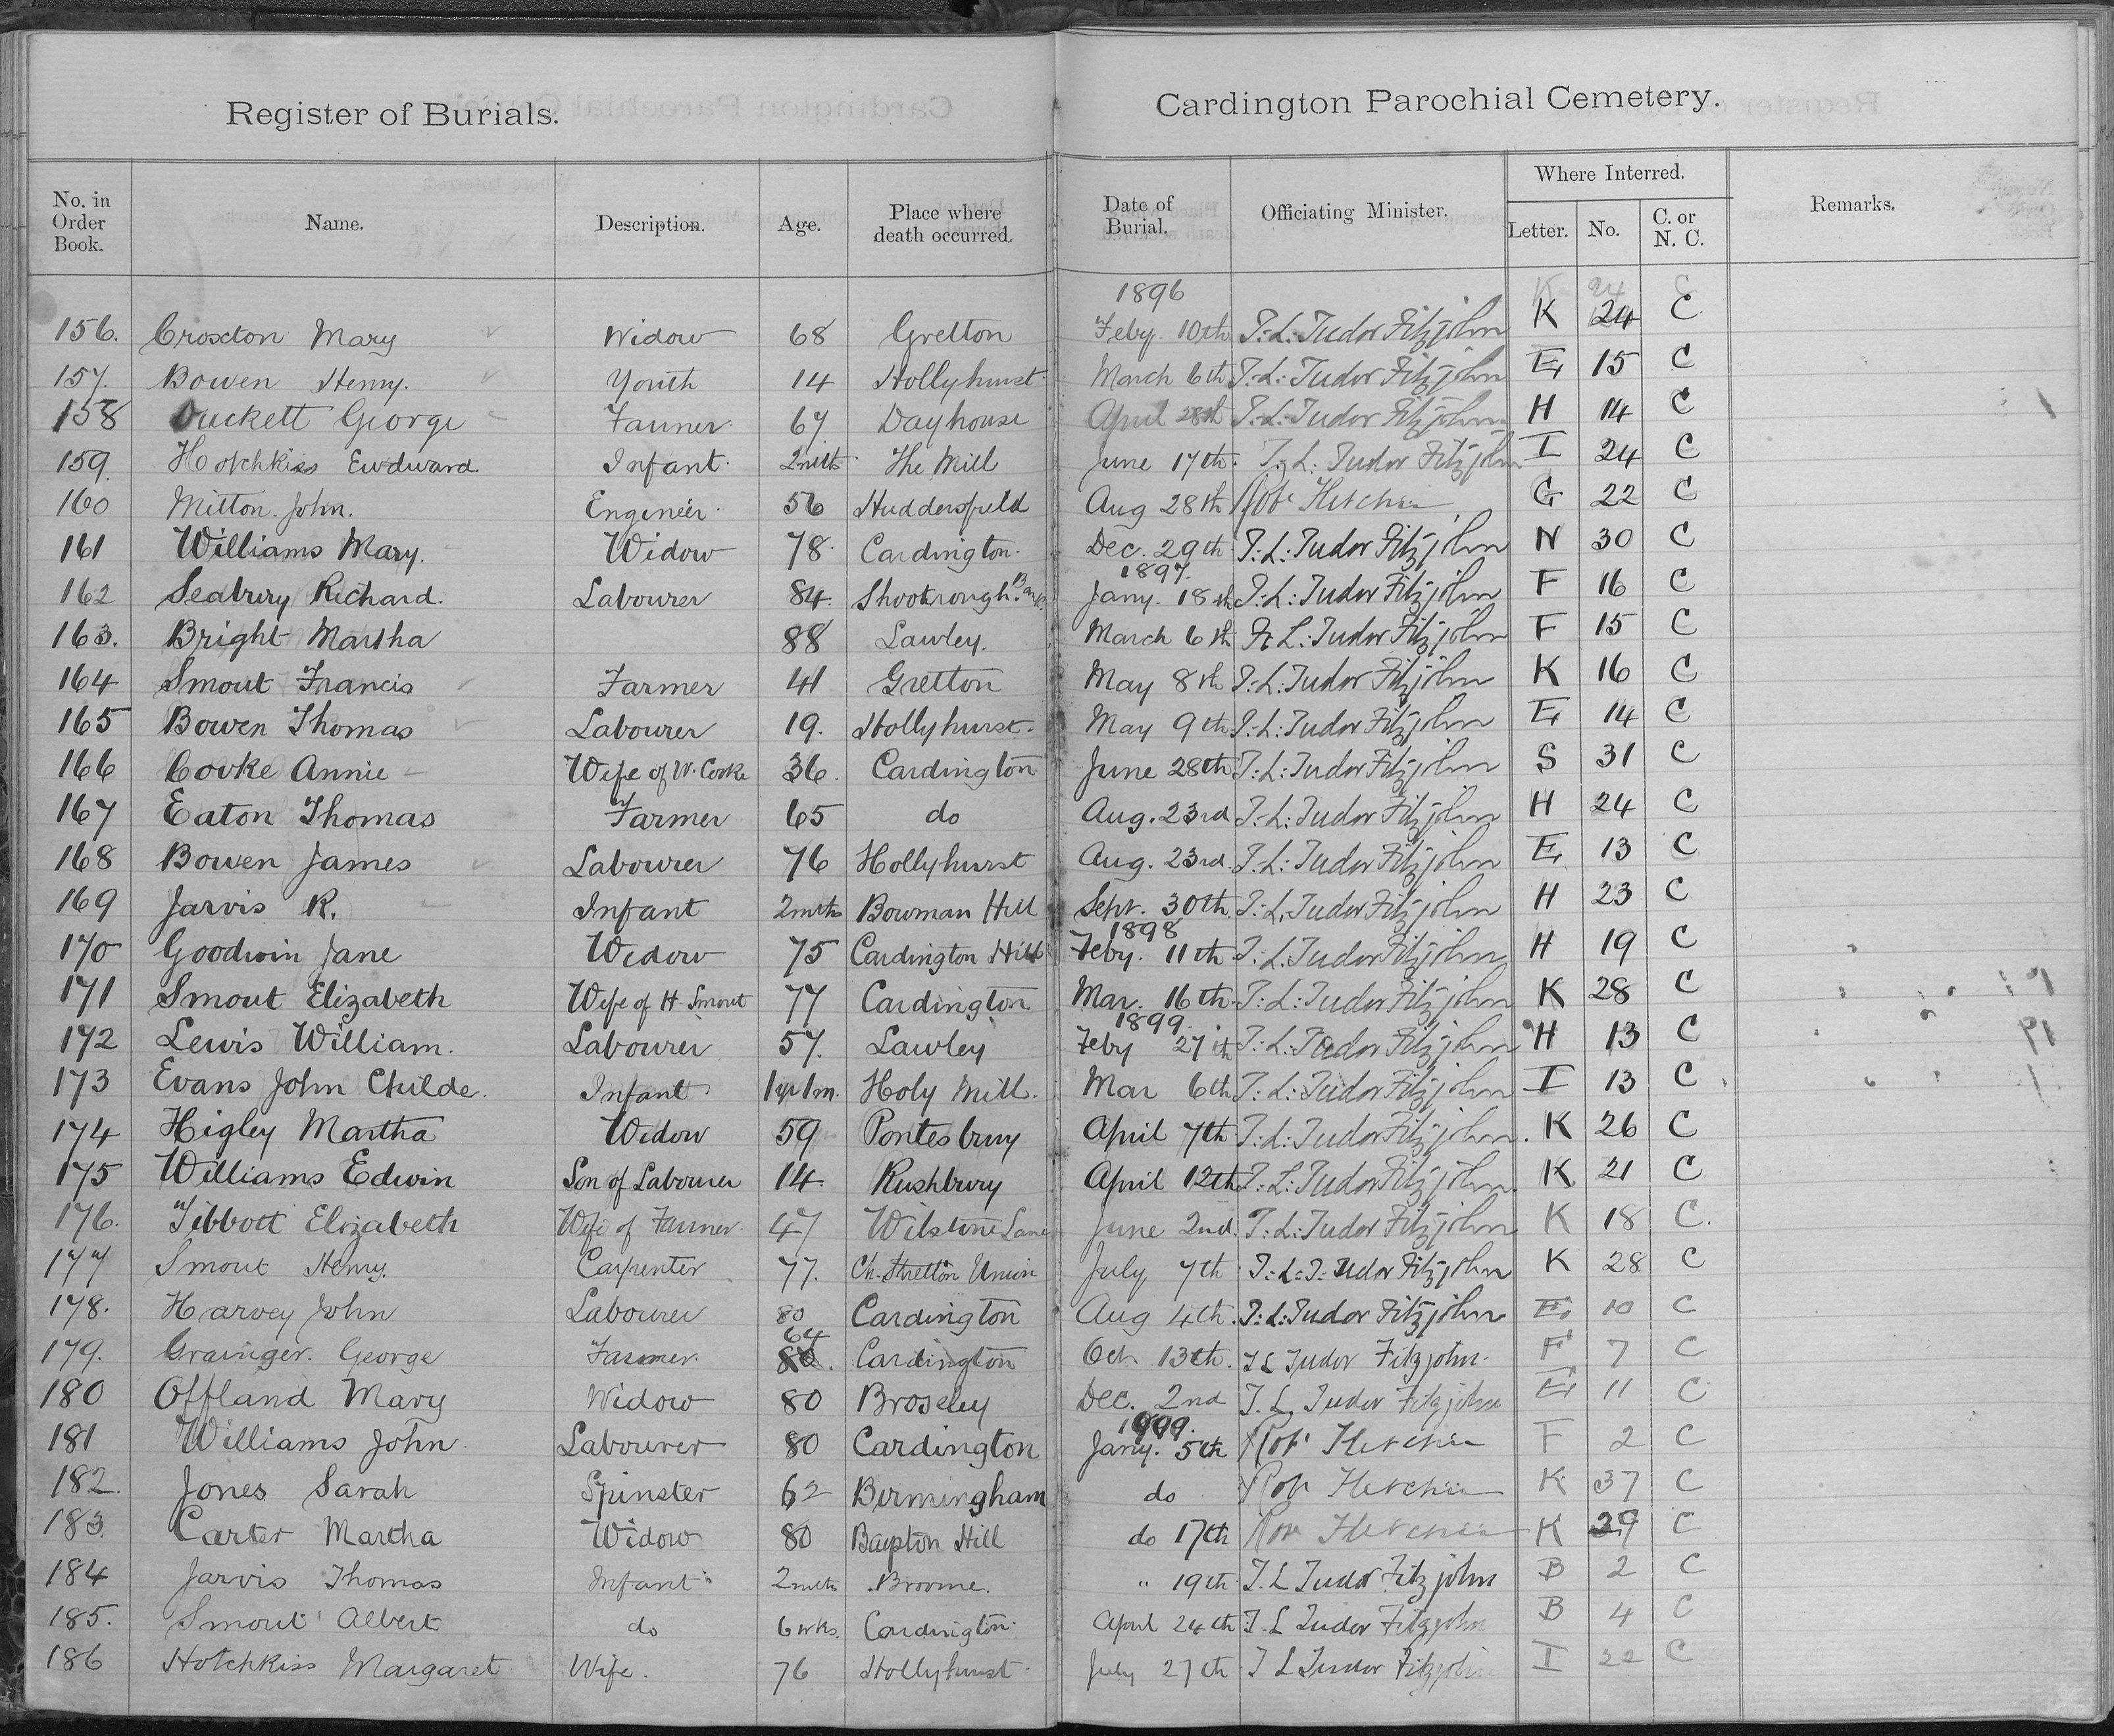 Register of Burials.
Cardington Parochial Cemetery.
No. in Order Book. Name. Description. Age. Place where death occurred. Date of Burial. Officiating Minister. Where Interred. Letter. No. C. or N. C. Remarks.
1896 K 24 C
156. Croxton Mary Widow 68 Gretton Feby. 10th T: L: Tudor Fitzjohn K 24 C
157. Bowen Henry. Youth 14 Hollyhurst March 6th T: L: Tudor Fitzjohn E 15 C
158 Duckett George Farmer 67 Dayhouse April 28th T: L: Tudor Fitzjohn H 14 C
159. Hotchkiss Ewdward Infant 2mths The Mill June 17th. T: L: Tudor Fitzjohn I 24 C
160 Mitton John. Engineer 56 Huddersfield Aug 28th G 22 C
161 Williams Mary. Widow 78 Cardington Dec. 29th T: L: Tudor Fitzjohn N 30 C
1897.
162 Seabury Richard. Labourer 84. Shootrough Bank. Jany. 18th T: L: Tudor Fitzjohn F 16 C
163. Bright Martha 88 Lawley. March 6th L: Tudor Fitzjohn F 15 C
164 Smout Francis Farmer 41 Gretton May 8th T: L: Tudor Fitzjohn K 16 C
165 Bowen Thomas Labourer 19. Hollyhurst. May 9th T: L: Tudor Fitzjohn E 14 C
166 Cooke Annie Wife of W. Cooke 36. Cardington June 28th T: L: Tudor Fitzjohn S 31 C
167 Eaton Thomas Farmer 65 do Aug. 23rd T: L: Tudor Fitzjohn H 24 C
168 Bowen James Labourer 76 Hollyhurst Aug. 23rd. T: L: Tudor Fitzjohn E 13 C
169 Jarvis R. Infant 2mths Bowman Hill Sept. 30th T: L: Tudor Fitzjohn H 23 C
1898
170 Goodwin Jane Widow 75 Cardington Hill Feby. 11th T: L: Tudor Fitzjohn H 19 C
171 Smout Elizabeth Wife of H. Smout 77 Cardington Mar. 16th T: L: Tudor Fitzjohn K 28 C
1899.
172 Lewis William. Labourer 57. Lawley Feby 27th T: L: Tudor Fitzjohn H 13 C
173 Evans John Childe. Infant 1yr 1m. Holy Mill. Mar 6th T: L: Tudor Fitzjohn I 13 C
174 Higley Martha Widow 59 Pontesbury April 7th T: L: Tudor Fitzjohn. K 26 C
175 Williams Edwin Son of Labourer 14. Rushbury April 12th T: L: Tudor Fitzjohn K 21 C
176. Tibbott Elizabeth Wife of Farmer 47 Wilstone Lane June 2nd. T: L: Tudor Fitzjohn K 18 C.
177 Smout Henry. Carpenter 77. Ch. Stretton Union July 7th T: L: T: Tudor Fitzjohn K 28 C
178. Harvey John Labourer 80 Cardington Aug 4th. T: L: Tudor Fitzjohn E 10 C
179. Grainger. George Farmer. 64 Cardington Oct. 13th. T L Tudor Fitzjohn. F 7 C
180 Offland Mary Widow 80 Broseley Dec. 2nd T. L. Tudor Fitzjohn E 11 C
181 Williams John. Labourer 80 Cardington Jany. 5th F 2 C
182. Jones Sarah Spinster 62 Birmingham do K 37 C
183. Carter Martha Widow 80 Hill do 17th K C
184 Jarvis Thomas Infant 2mths Broome. " 19th T. L Tudor Fitzjohn B 2 C
185. Smout Albert do 6wks. Cardington April 24th T. L Tudor Fitzjohn B 4 C
186 Hotchkiss Margaret Wife. 76 Hollyhurst July 27th T L Tudor Fitzjohn I 22 C